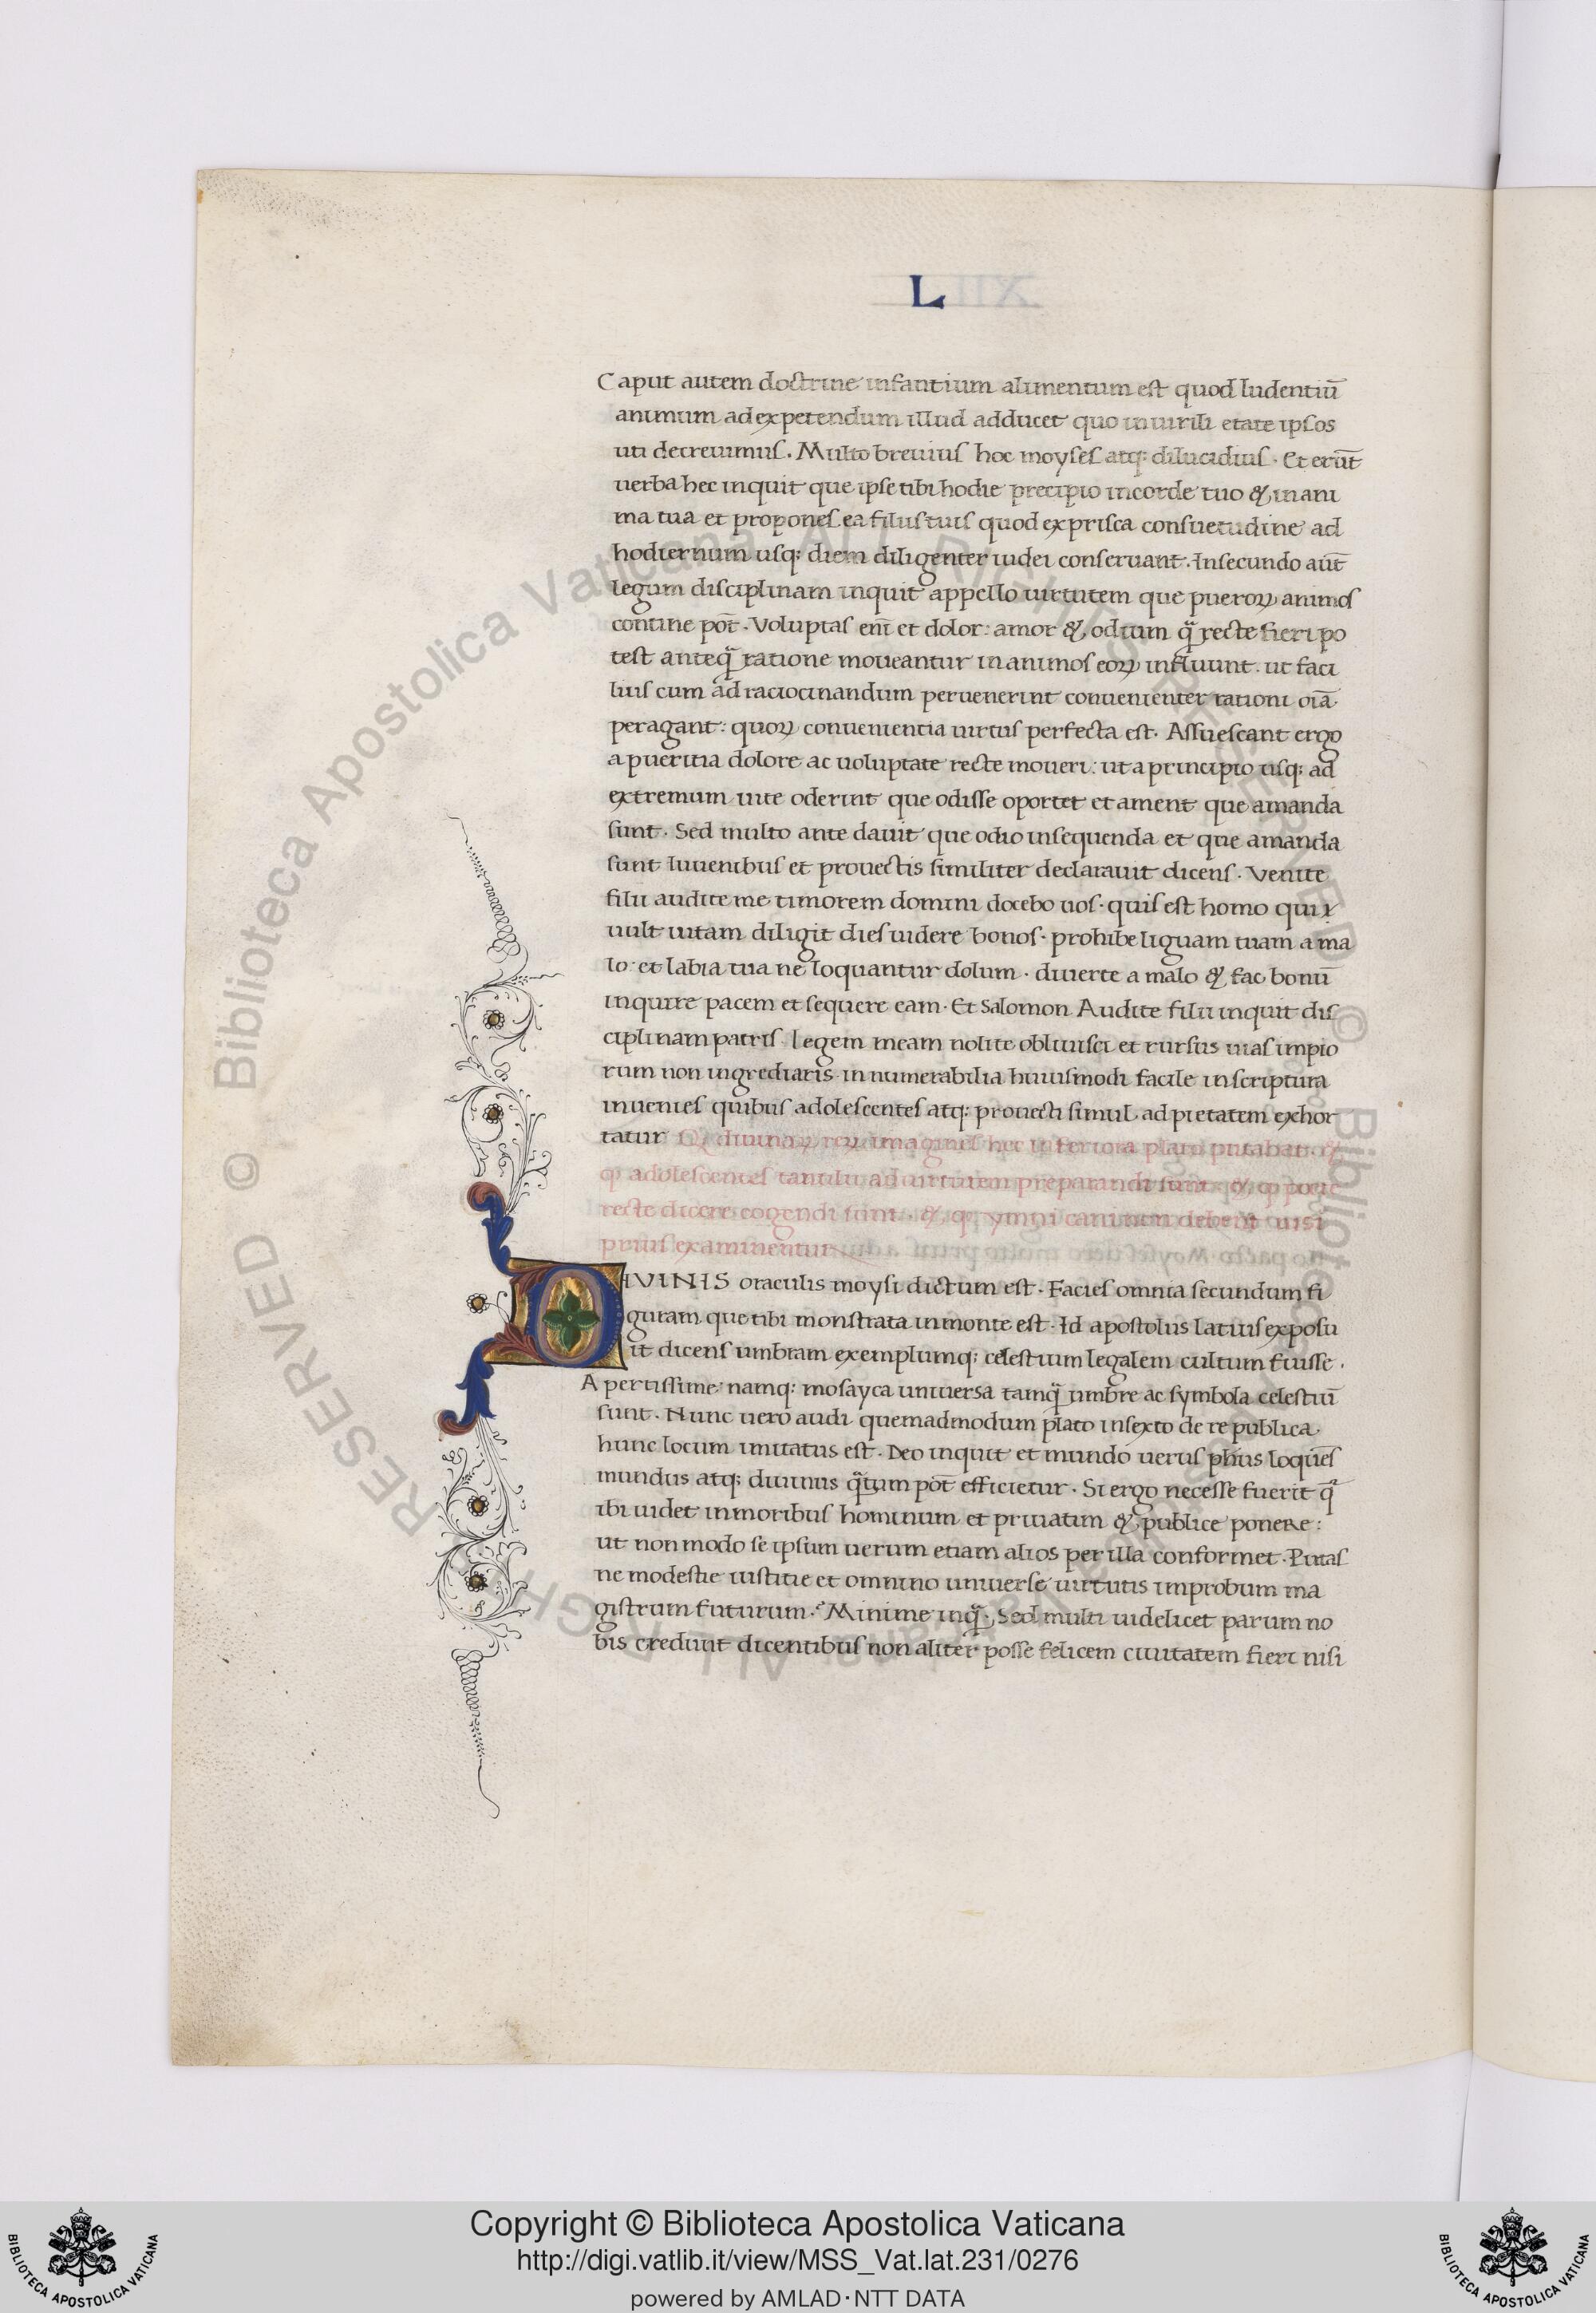 L
Caput autem doctrine infantium alimentum est quod ludentiū
animum ad expetendum illud adducet quo in uirili etate ipsos
uti decreuimus. Multo breuius hoc moyses atq; dilucidius. Et erūt
uerba hec inquit que ipse tibi hodie precipio in corde tuo & in ani
ma tua et propones ea filiis tuis quod ex prisca consuetudine ad
hodiernum usq; diem diligenter iudei conseruant. In secundo aūt
legum disciplinam inquit appello uirtutem que pueroꝝ animos
contine pōt. Voluptas eni̅ et dolor: amor & odium q̄ recte fieri po
test anteq̄ ratione moueantur in animos eoꝝ influunt. ut faci
lius cum ad raciocinandum peruenerint conuenienter rationi oi̅a
peragant: quoꝝ conuenientia uirtus perfecta est. Assuescant ergo
a pueritia dolore ac uoluptate recte moueri: ut a principio usq; ad
extremum uite oderint que odisse oportet et ament que amanda
sunt. Sed multo ante dauit que odio insequenda et que amanda
sunt Iuuenibus et prouectis similiter declarauit dicens. Venite
filii audite me timorem domini docebo uos. quis est homo qui
uult uitam diligit dies uidere bonos. prohibe liguam tuam a ma
lo: et labia tua ne loquantur dolum. diuerte a malo & fac bonū
inquire pacem et sequere eam. Et Salomon Audite filii inquit dis
ciplinam patris. legem meam nolite obliuisci et rursus uias impio
rum non ingrediaris. in numerabilia huiusmodi facile in scriptura
inuenies quibus adolescentes atq; prouecti simul ad pietatem exhor
tatur Q diuinaꝝ reꝝ imagines hec inferiora plato putabat. &
ꝙ adolescentes tantulu ad uirtutem preparandi sunt. & ꝙ poete
recte dicere cogendi sunt. & ꝙ ymni cani non debent nisi
prius examinentur
DIVINIS oraculis moysi dictum est. Facies omnia secundum fi
guram que tibi monstrata in monte est. Id apostolus latius exposu
it dicens umbram exemplumq; celestium legalem cultum fuisse.
Apertissime namq; mosayca uniuersa tamq̄ umbre ac symbola celestiū
sunt. Nunc uero audi quemadmodum plato in sexto de re publica
hunc locum imitatus est. Deo inquit et mundo uerus phūs loquēs
mundus atq; diuinus q̄tum pōt efficietur. Si ergo necesse fuerit q̄
ibi uidet in moribus hominum et priuatim & publice ponere:
ut non modo se ipsum uerum etiam alios per illa conformet. Putas
ne modestie iustitie et omnino uniuerse uirtutis improbum ma
gistrum futurum. Minime inq̄. Sed multi uidelicet parum no
bis credunt dicentibus non aliter posse felicem ciuitatem fieri nisi
Biblioteca Apostolica Vaticana ALL RIGHTS RESERVED ©
Copyright © Biblioteca Apostolica Vaticana
http://digi.vatlib.it/view/MSS_Vat.lat.231/0276
powered by AMLAD·NTT DATA
BIBLIOTECA APOSTOLICA VATICANA
BIBLIOTECA APOSTOLICA VATICANA